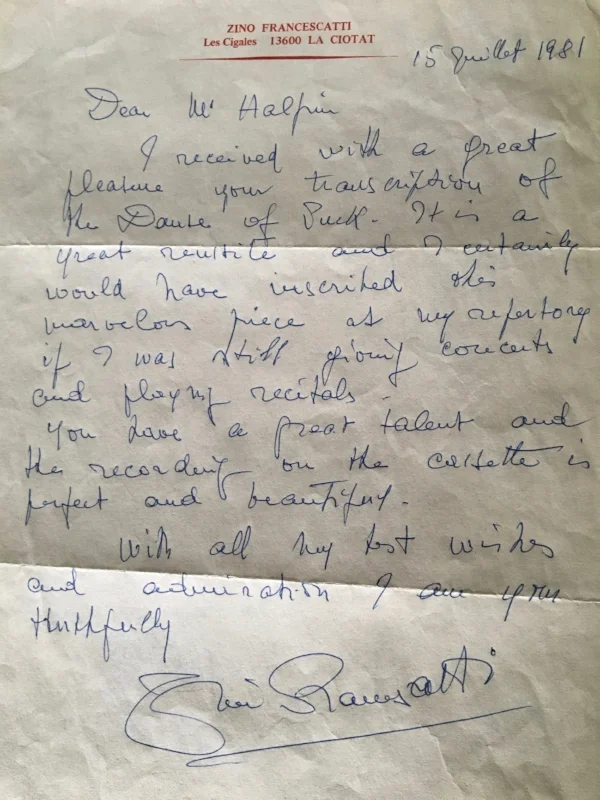 ZINO FRANCESCATTI
Les Cigales 13600 LA CIOTAT
15 Juillet 1981
Dear Mr Halprin
I received with a great
pleasure your transcription of
the Danse of Puck. It is a
great and I certainly
would have inscribed this
marvelous piece at my repertory
if I was still giving concerts
and playing recitals.
You have a great talent and
the recording on the cassette is
perfect and beautiful.
With all my best wishes
and admiration I am your
thuthfully
Zino Francescatti